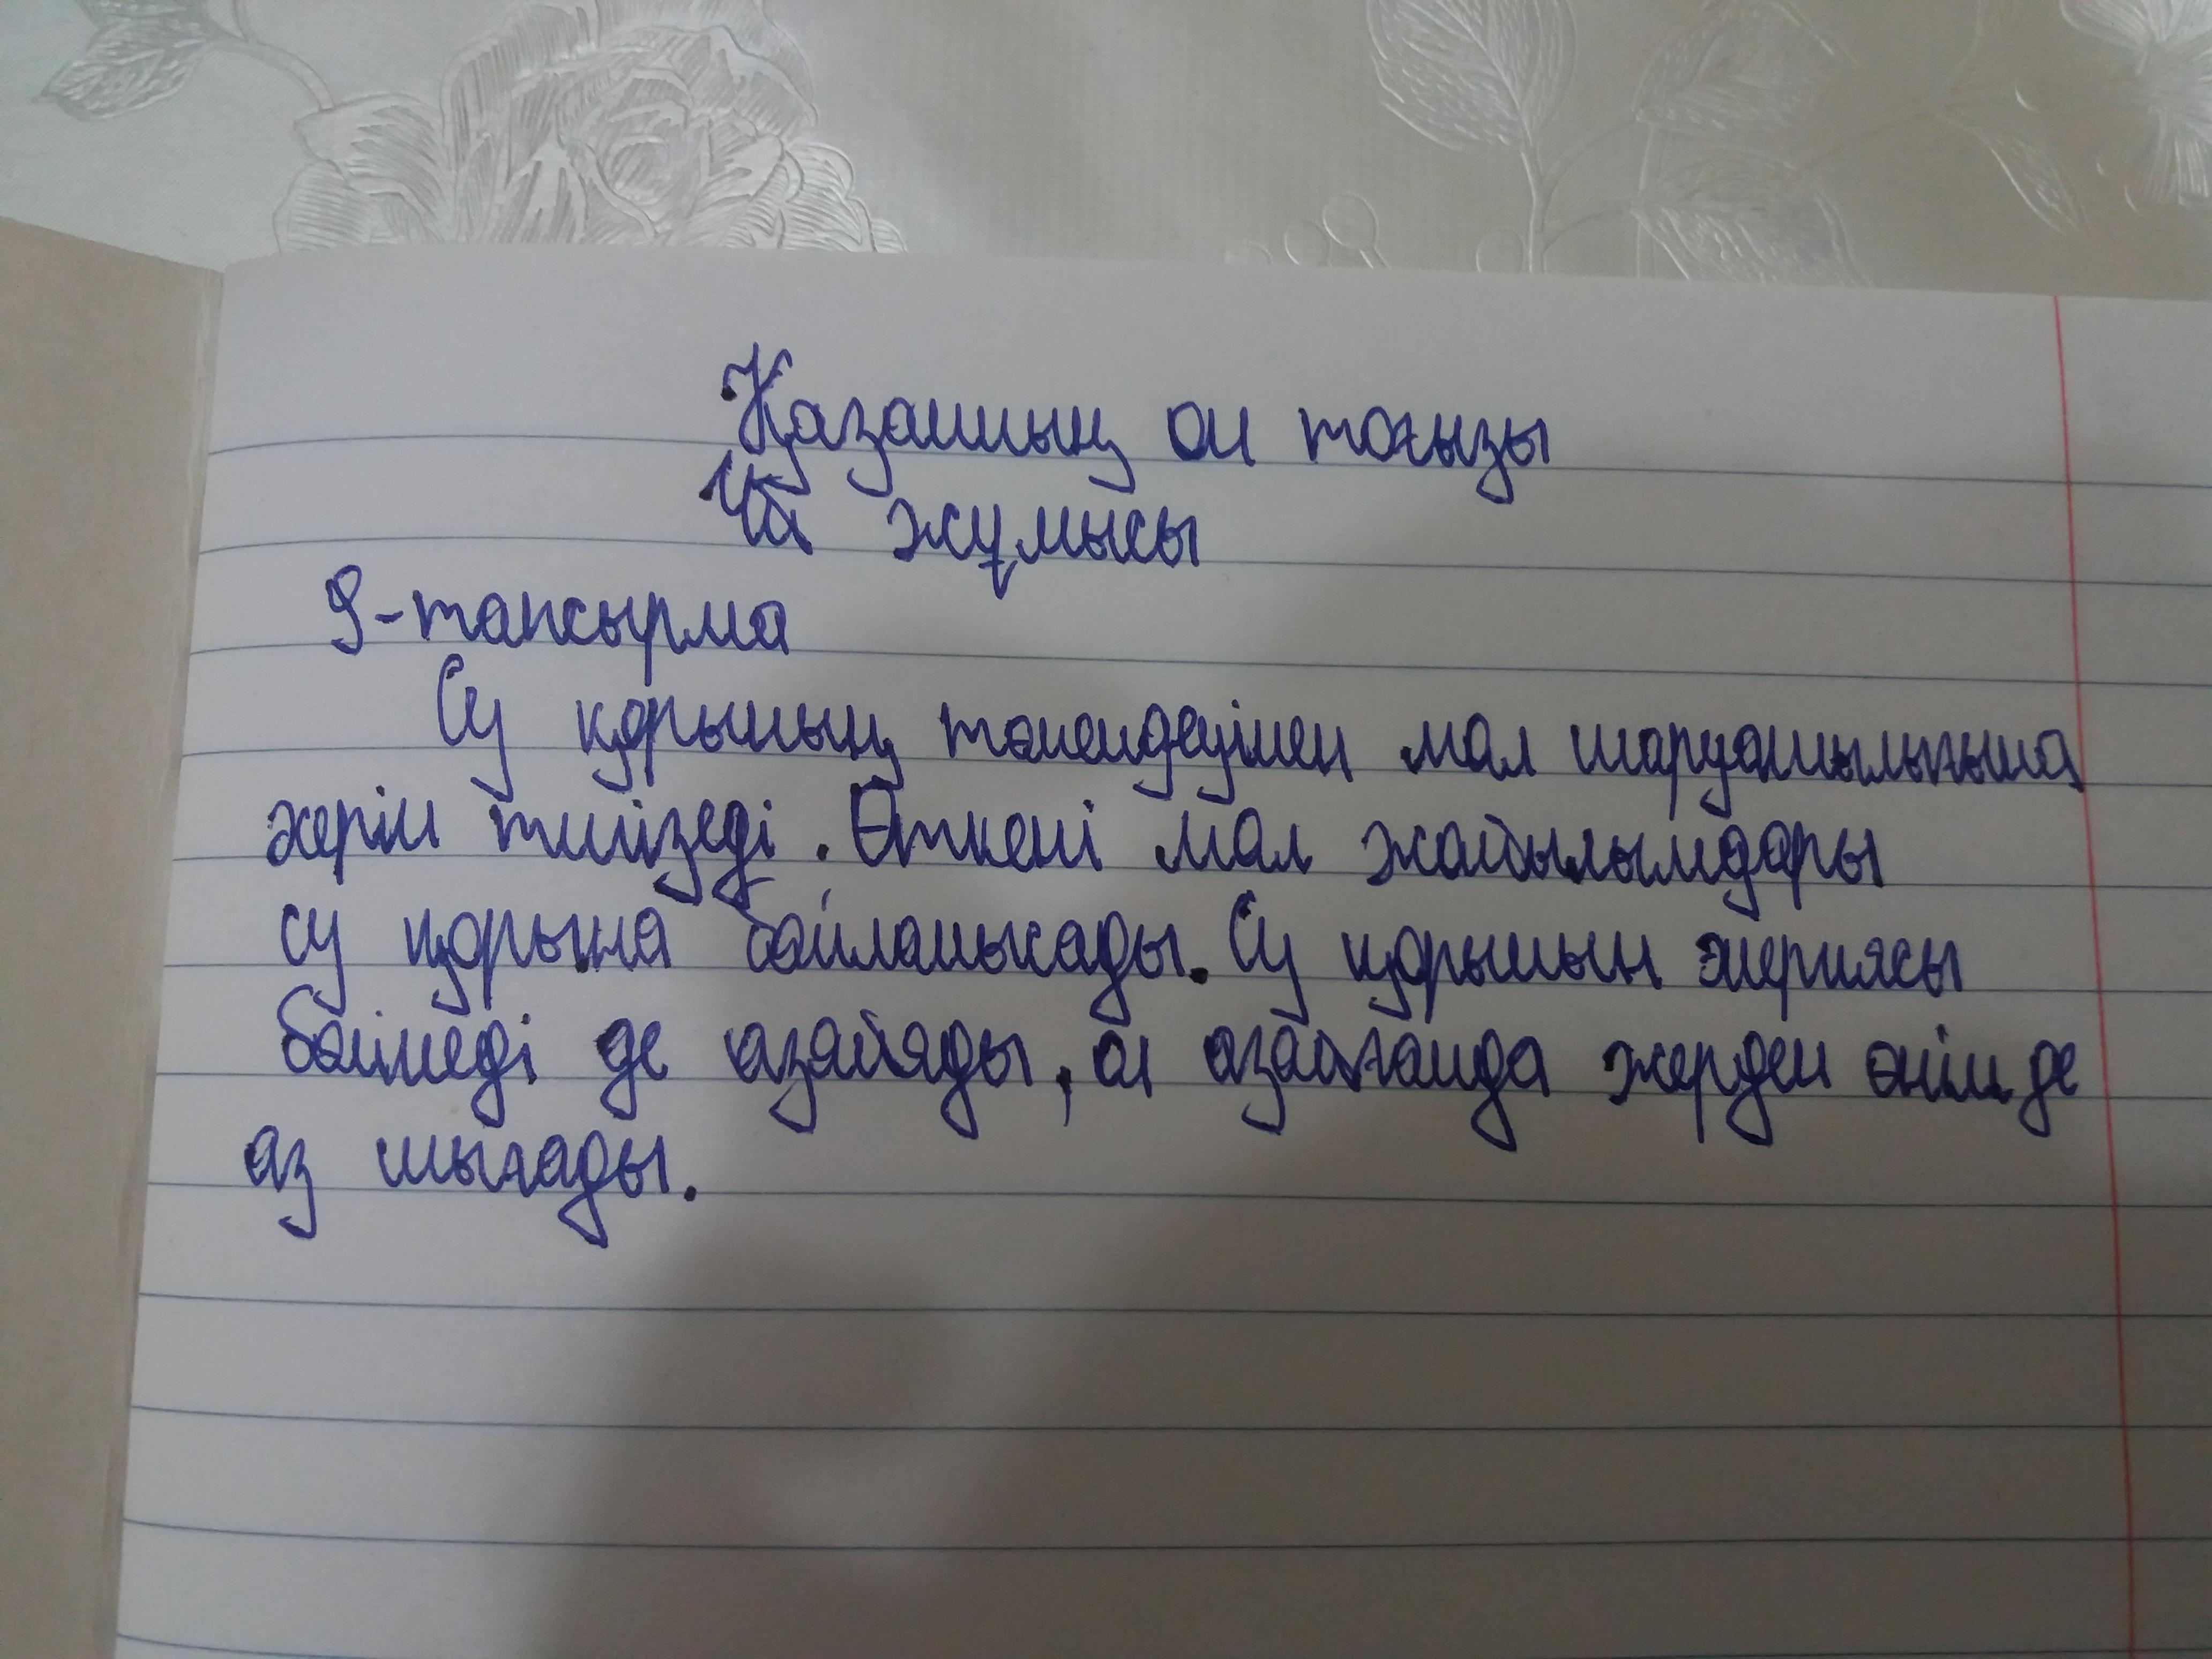 Қазанның он тоғызы
Үй жұмысы
9-тапсырма
Су қорының төмендеуімен мал шаруашылығына
жерін тигізеді. Өткені мал жайылымдары
су қорына байланысады. Су қорының
бөлінеді де азаяды, ол азайғанда жерден өнім де
аз шығады.